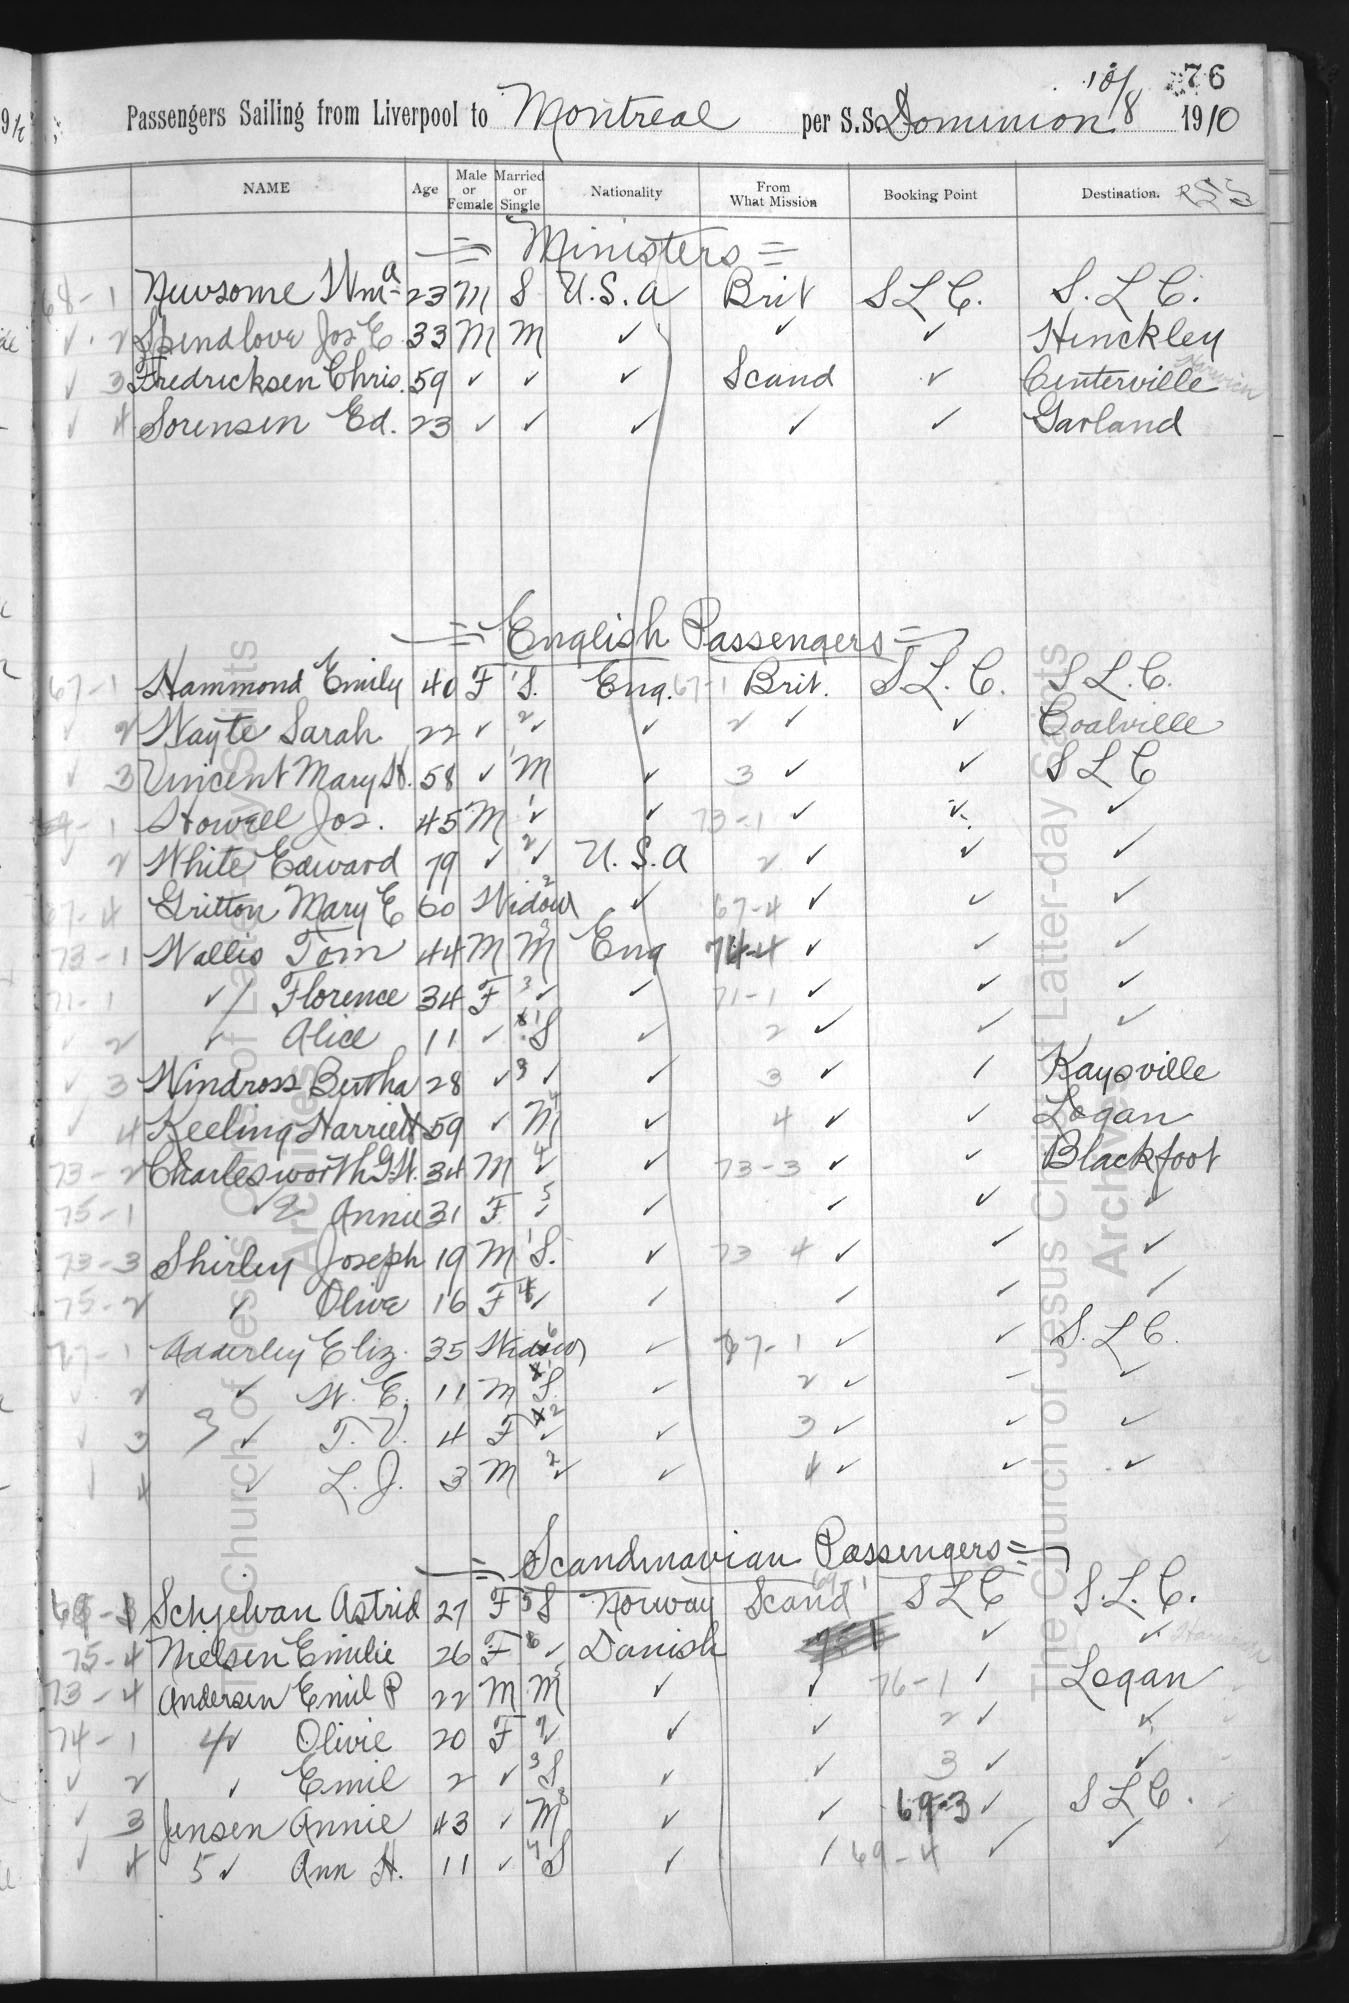 76
Passengers Sailing from Liverpool to Montreal per S.S. Dominion 10/8 1910
NAME Age Male or Female Married or Single Nationality From What Mission Booking Point Destination.
= Ministers =
68-1 Newsome Wm A 23 M S U.S.A Brit S L C. S. L C.
✓ 2 Spendlove Jos E. 33 M M ✓ ✓ ✓ Hinckley
✓ 3 Fredricksen Chris. 59 ✓ ✓ ✓ Scand ✓ Centerville
✓ 4 Sorensen Ed. 23 ✓ ✓ ✓ ✓ ✓ Garland
= English Passengers =
67-1 Hammond Emily 40 F 1 S. Eng. 67-1 Brit. S L. C. S L. C.
✓ 2 Wayte Sarah 22 ✓ 2 ✓ ✓ 2 ✓ ✓ Coalville
✓ 3 Vincent Mary H. 58 ✓ 1 M ✓ 3 ✓ ✓ S L C
1 Howell Jos. 45 M 1 ✓ ✓ 73-1 ✓ ✓ ✓
✓ 2 White Edward 79 ✓ 2 ✓ U. S. A 2 ✓ ✓ ✓
67-4 Gritton Mary E 60 Widow 2 ✓ 67-4 ✓ ✓ ✓
73-1 Wallis Tom 44 M M 3 Eng 74-4 ✓ ✓ ✓
71-1 ✓ Florence 34 F 3 ✓ ✓ 71-1 ✓ ✓ ✓
✓ 2 ✓ Alice 11 ✓ 1 S ✓ 2 ✓ ✓ ✓
✓ 3 Windross Bertha 28 ✓ 3 ✓ ✓ 3 ✓ ✓ Kaysville
✓ 4 Keeling Harriett 59 ✓ M 4 ✓ 4 ✓ ✓ Logan
73-2 Charlesworth G H. 34 M 4 ✓ ✓ 73-3 ✓ ✓ Blackfoot
75-1 2 Annie 31 F 5 ✓ ✓ ✓ ✓ ✓
73-3 Shirley Joseph 19 M 1 S. ✓ 73 4 ✓ ✓ ✓
75-2 ✓ Olive 16 F 4 ✓ ✓ ✓ ✓ ✓
67-1 Adderley Eliz. 35 Widow 6 ✓ 67-1 ✓ ✓ S. L C.
✓ 2 ✓ W. E. 11 M 1 S. ✓ 2 ✓ - ✓
✓ 3 3 ✓ T. V. 4 F 2 ✓ ✓ 3 ✓ ✓ ✓
✓ 4 ✓ L. J. 3 M 2 ✓ ✓ 4 ✓ ✓ ✓
= Scandinavian Passengers =
Schjelvan Astrid 27 F 5 S Norway Scand S L C S. L. C.
75-4 Nielsen Emilie 26 F 6 ✓ Danish ✓ ✓
73-4 Andersen Emil P 22 M M 5 ✓ ✓ 76-1 ✓ Logan
74-1 4 ✓ Olivie 20 F 7 ✓ ✓ ✓ 2 ✓ ✓
✓ 2 ✓ Emil 2 ✓ 3 S ✓ ✓ 3 ✓ ✓
✓ 3 Jensen Annie 43 ✓ M 8 ✓ ✓ 69-3 ✓ S L C.
✓ 4 5 ✓ Ann H. 11 ✓ 4 S ✓ ✓ 69-4 ✓ ✓
The Church of Jesus Christ of Latter-day Saints
Archives
The Church of Jesus Christ of Latter-day Saints
Archives